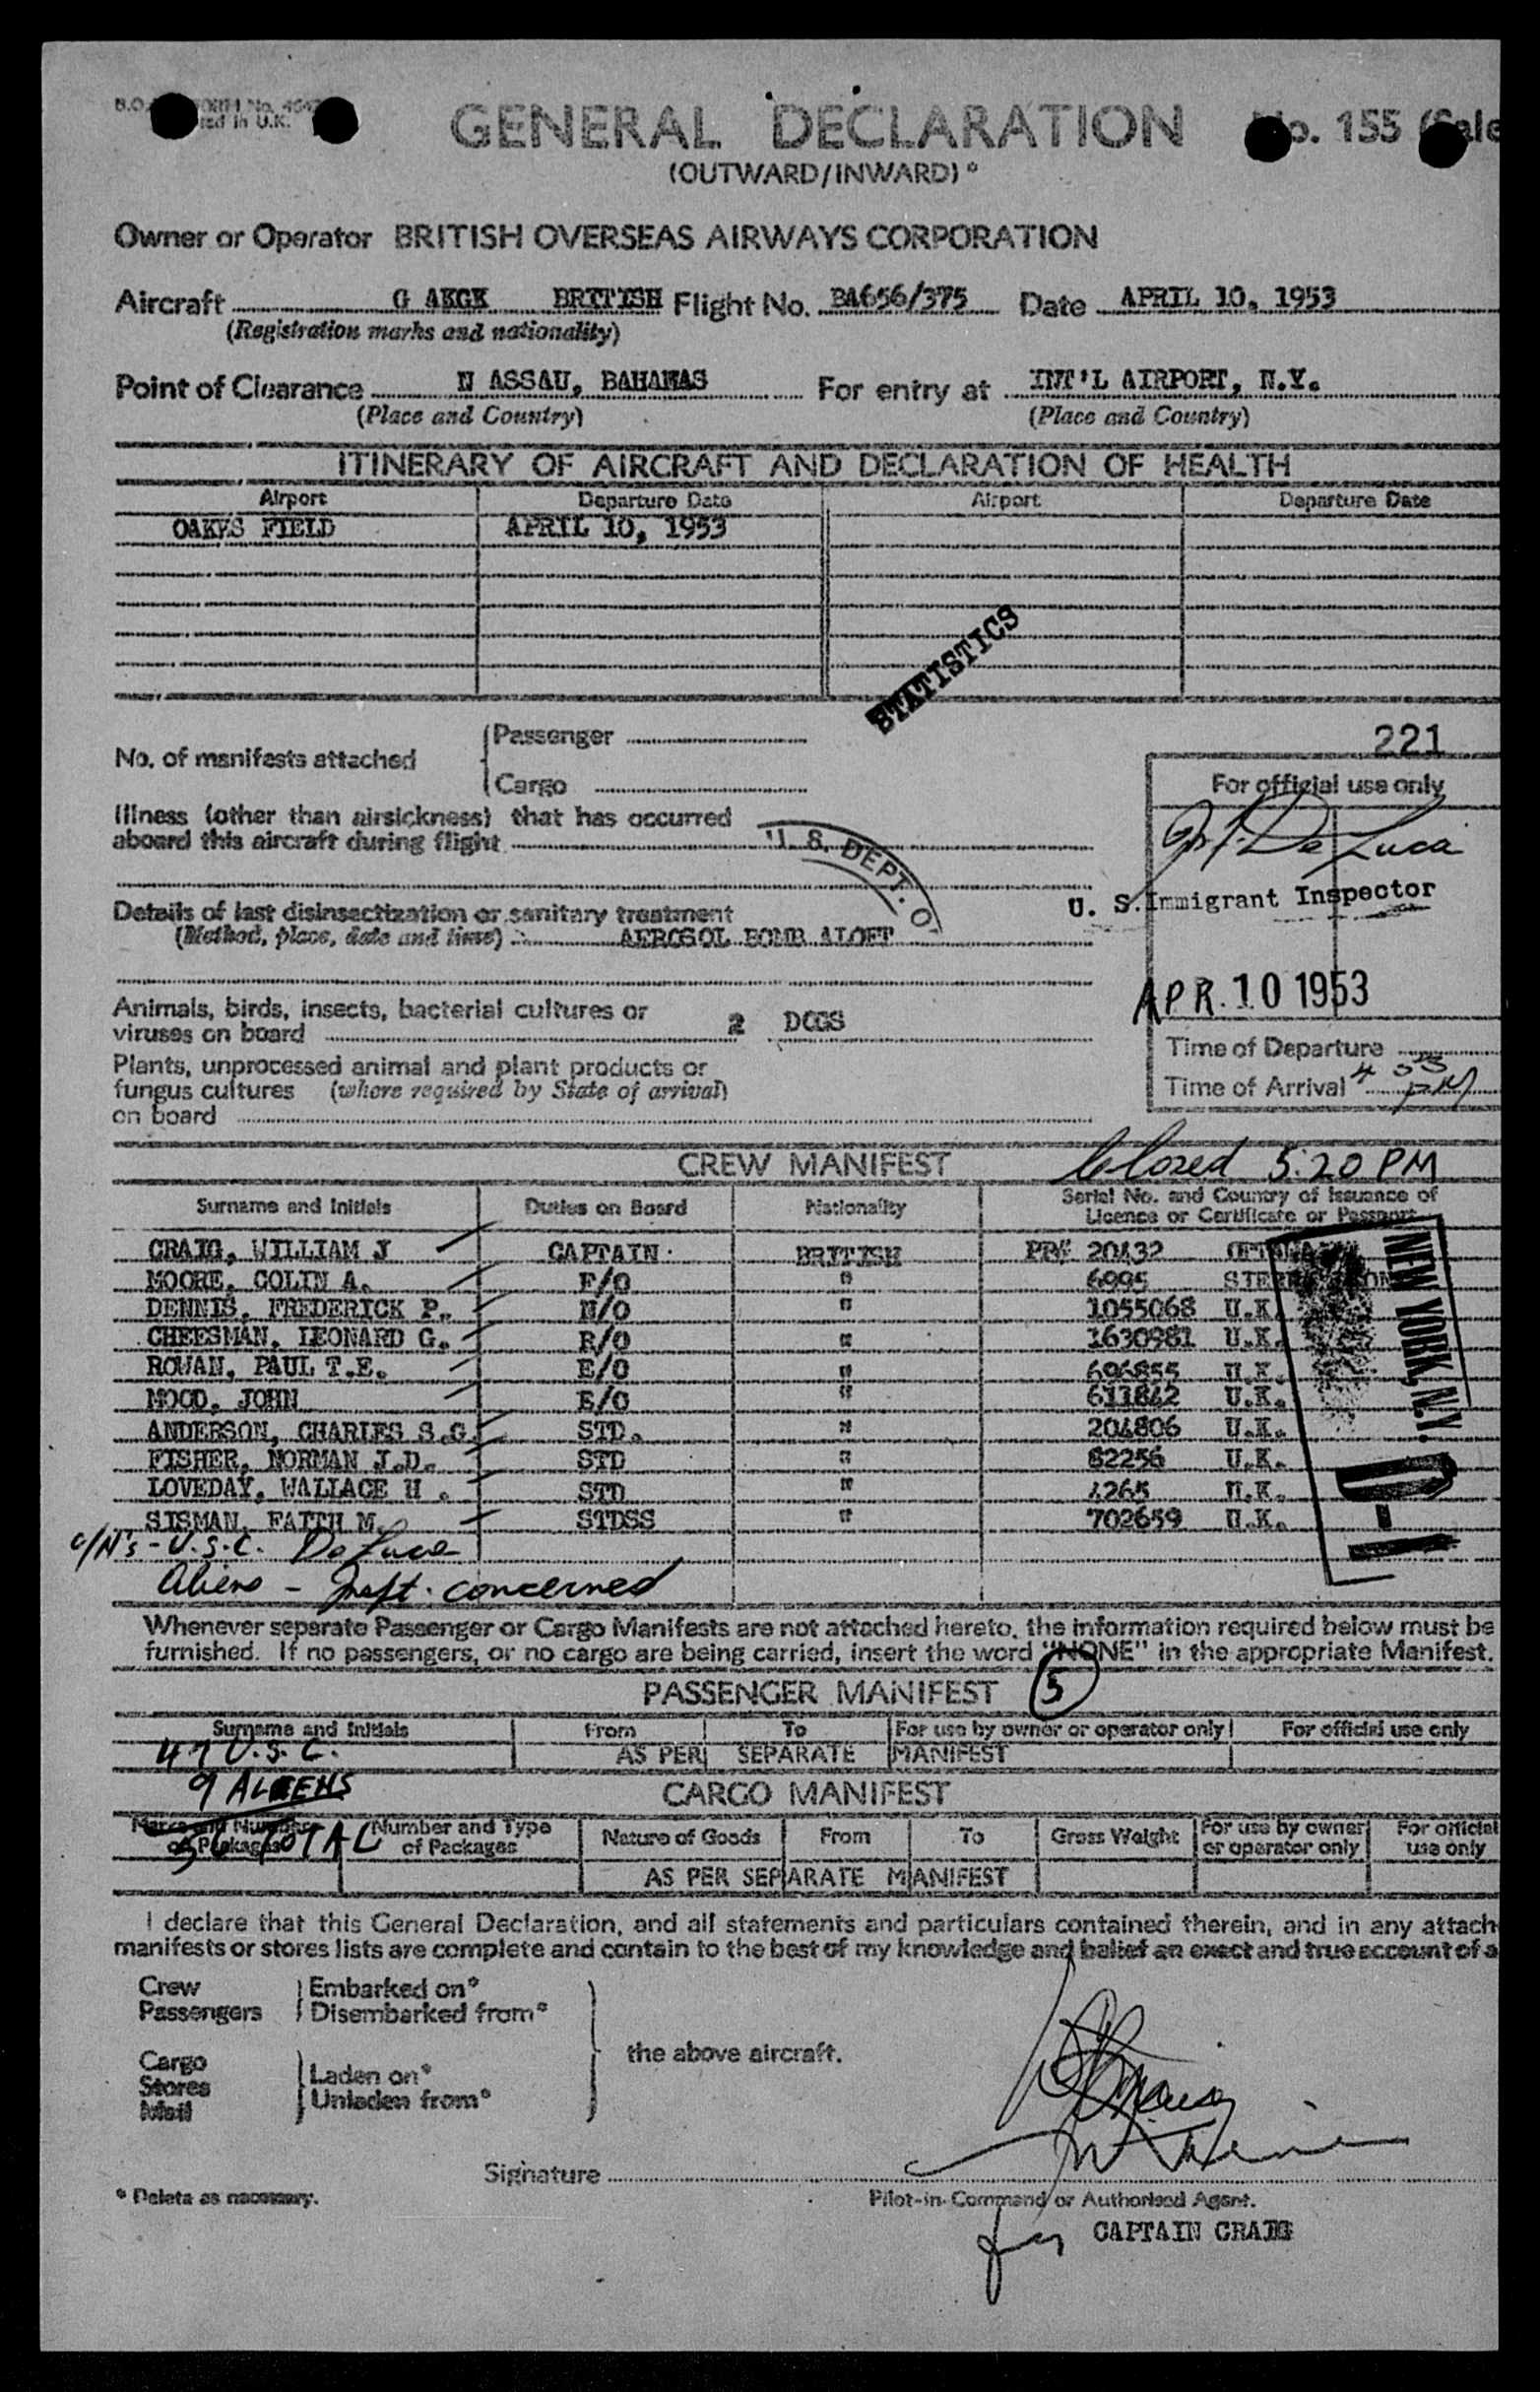 GENERAL DECLARATION
No. 155 (Sale
(OUTWARD/INWARD)*
Owner or Operator BRITISH OVERSEAS AIRWAYS CORPORATION
Aircraft G AKGK BRITISH Flight No. BA656/375 Date APRIL 10, 1953
(Registration marks and nationality)
Point of Clearance N ASSAU, BAHAMAS For entry at INT'L AIRPORT, N.Y.
(Place and Country) (Place and Country)
ITINERARY OF AIRCRAFT AND DECLARATION OF HEALTH
Airport Departure Date Airport Departure Date
OAKES FIELD APRIL 10, 1953
STATISTICS
No. of manifests attached
Passenger
Cargo
221
For official use only
Illness (other than airsickness) that has occurred
aboard this aircraft during flight
U. S. DEPT. O
De Luca
U. S. Immigrant Inspector
Details of last disinsectization or sanitary treatment
(Method, place, date and time) AEROSOL BOMB ALOFT
APR. 10 1953
Animals, birds, insects, bacterial cultures or
viruses on board 2 DOGS
Time of Departure
Time of Arrival 4 55 PM
Plants, unprocessed animal and plant products or
fungus cultures (where required by State of arrival)
on board
CREW MANIFEST Closed 5:20 PM
Surname and Initials Duties on Board Nationality Serial No. and Country of Issuance of
Licence or Certificate or Passport
CRAIG, WILLIAM J CAPTAIN BRITISH PP# 20432
MOORE, COLIN A. F/O " 6995
DENNIS, FREDERICK P. N/O " 1055068 U.K.
CHEESMAN, LEONARD G. R/O " 1630981 U.K.
ROWAN, PAUL T.E. E/O " 696855 U.K.
MOOD, JOHN E/O " 611842 U.K.
ANDERSON, CHARLES S.G. STD. " 204806 U.K.
FISHER, NORMAN J.D. STD " 82256 U.K.
LOVEDAY, WALLACE H . STD " 4265 U.K.
SISMAN, FAITH M. STDSS " 702659 U.K.
NEW YORK, N.Y.
D-1
c/M's - U.S.C. De Luca
Aliens - Insft. concerned
Whenever separate Passenger or Cargo Manifests are not attached hereto, the information required below must be
furnished. If no passengers, or no cargo are being carried, insert the word "NONE" in the appropriate Manifest.
PASSENGER MANIFEST 5
Surname and Initials From To For use by owner or operator only For official use only
47 U.S.C.
AS PER SEPARATE MANIFEST
9 ALIENS
CARGO MANIFEST
56 TOTAL
Marks and Numbers
on Packages
Number and Type
of Packages
Nature of Goods From To Gross Weight
For use by owner
or operator only
For official
use only
AS PER SEPARATE MANIFEST
I declare that this General Declaration, and all statements and particulars contained therein, and in any attach
manifests or stores lists are complete and contain to the best of my knowledge and belief an exact and true account of a
Crew Embarked on*
Passengers Disembarked from*
the above aircraft.
Cargo
Stores
Mail
Laden on*
Unladen from*
Signature
* Delete as necessary.
Pilot-in-Command or Authorised Agent.
for CAPTAIN CRAIG